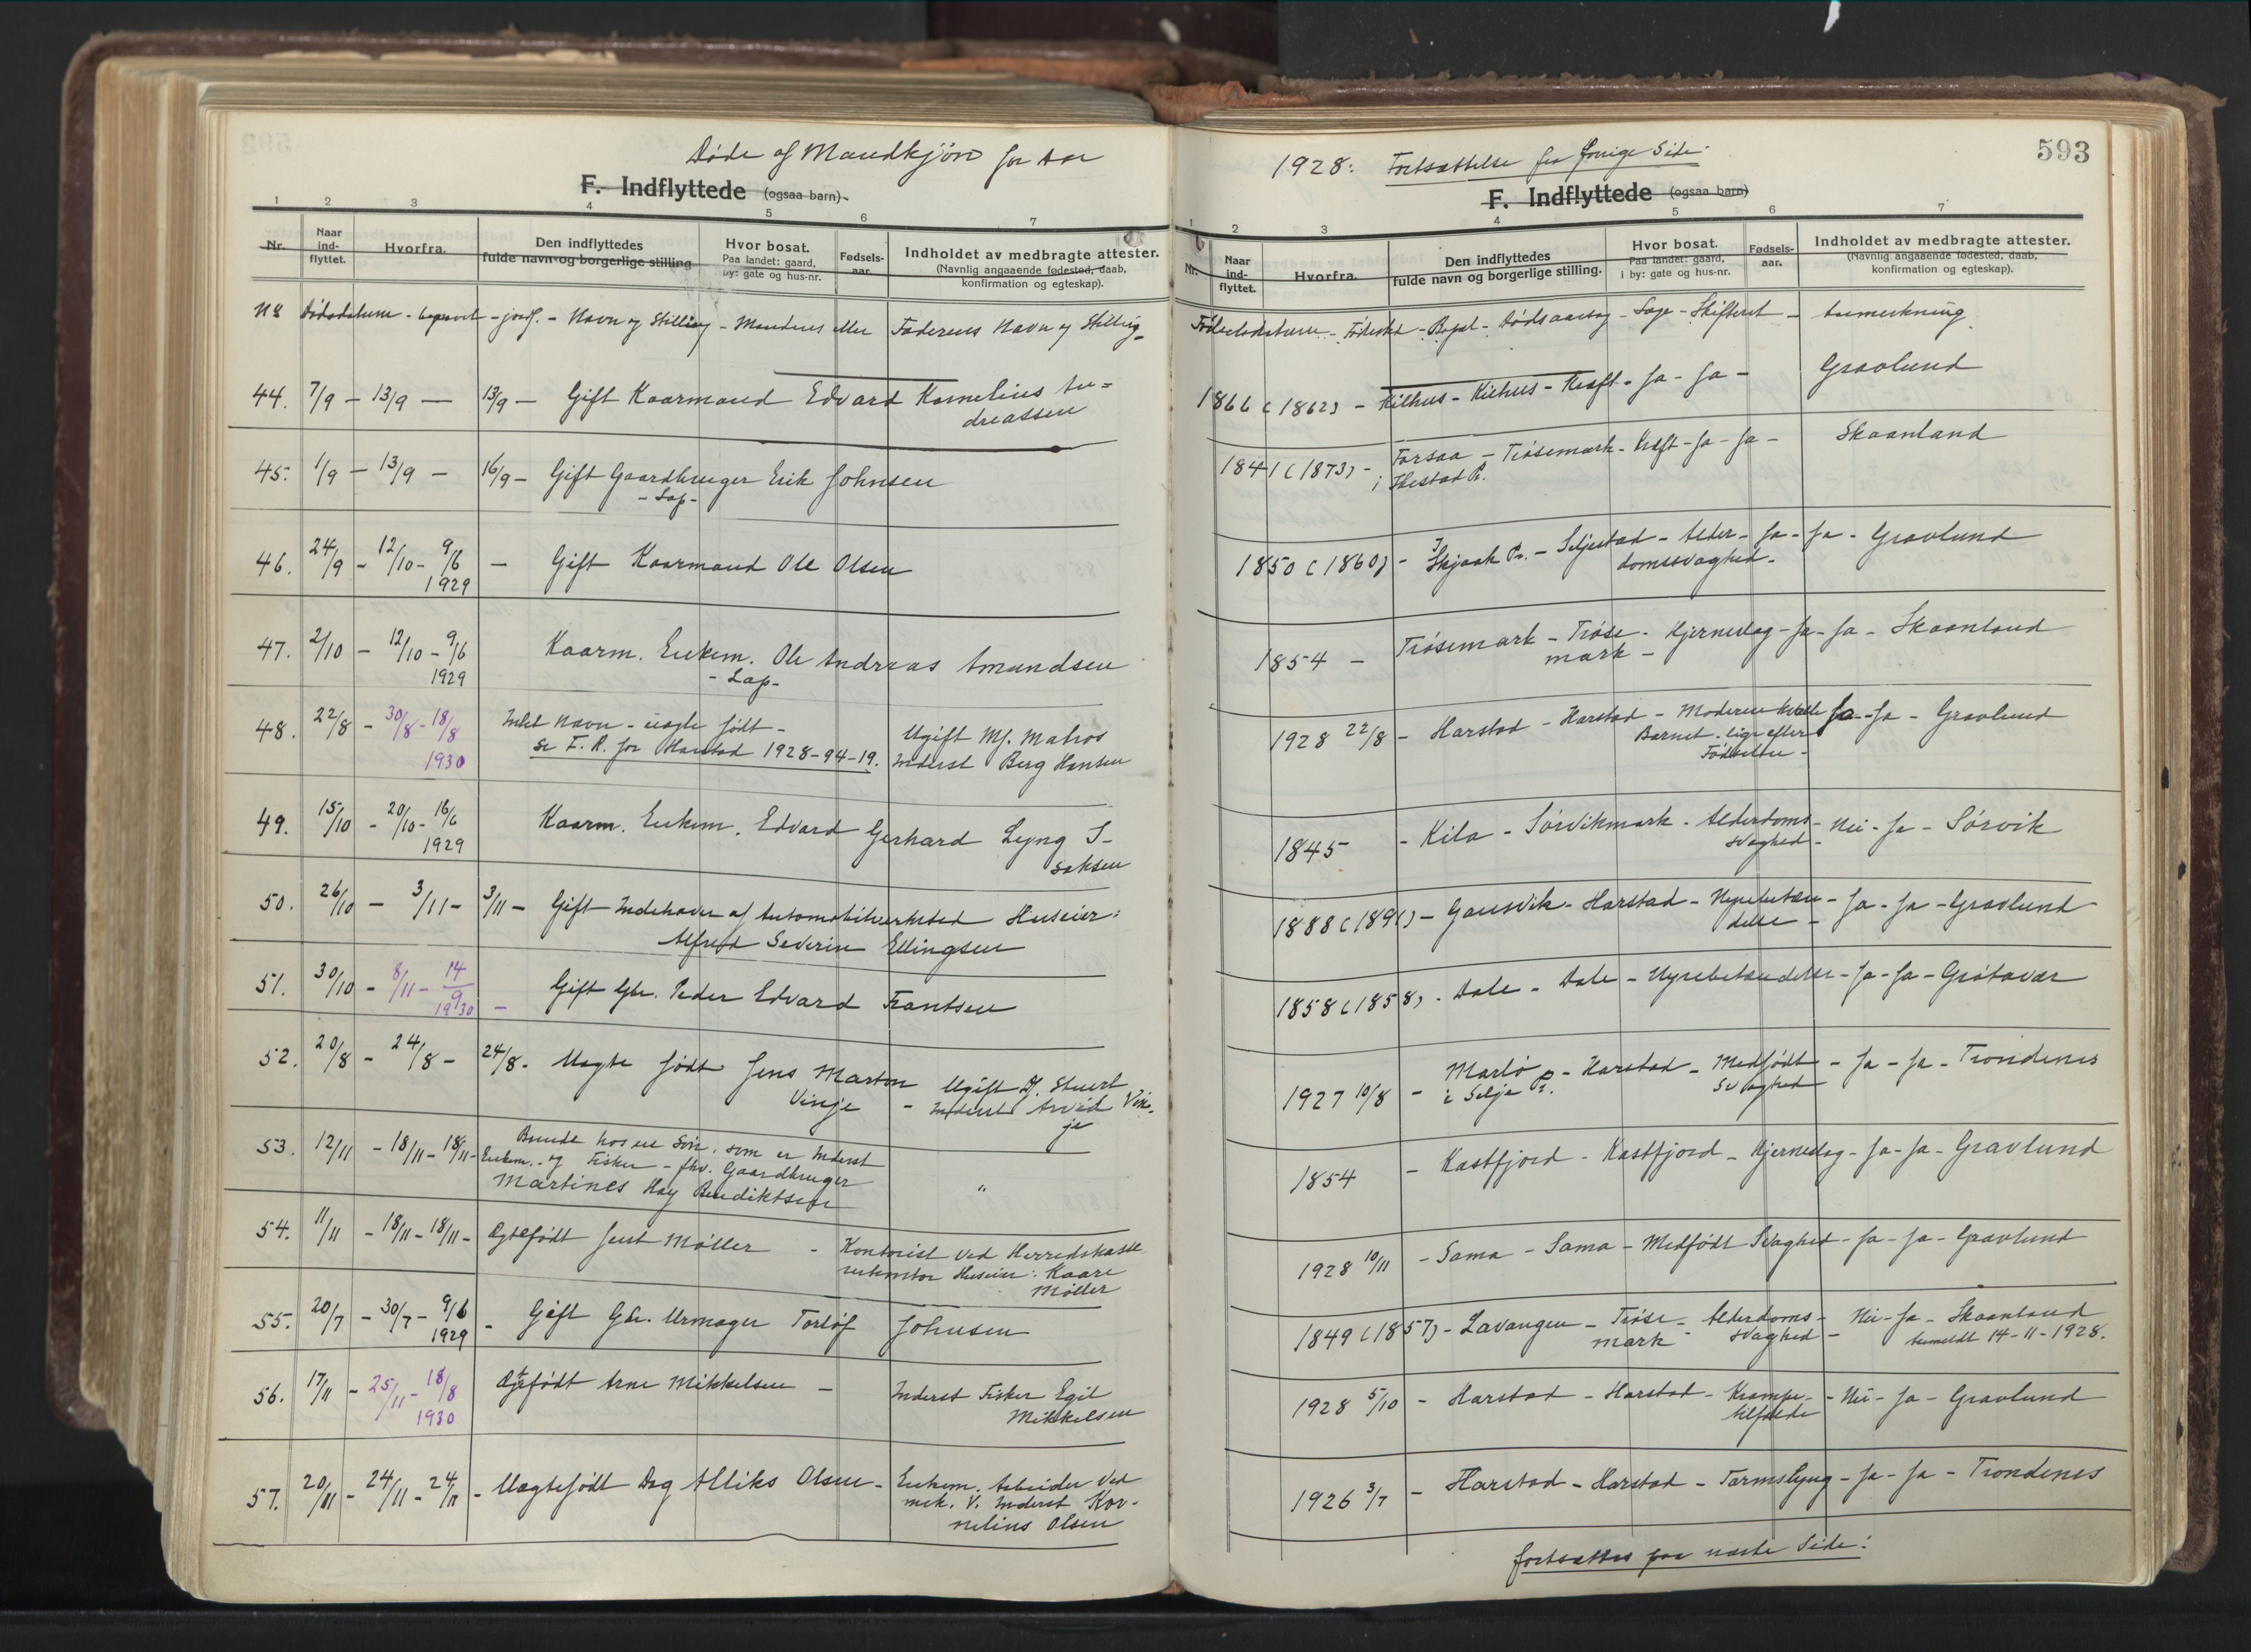 Døde af Mandkjøn for Aar
F. Indflyttede (ogsaa barn).
1 2 3 4 5 6 7
Nr. Naar ind-flyttet. Hvorfra. Den indflyttedes fulde navn og borgerlige stilling Hvor bosat. Paa landet: gaard, by: gate og hus-nr. Fødsels-aar. Indholdet av medbragte attester. (Navnlig angaaende fødested, daab, konfirmation og egteskap).
No Dødsdatum - begravet - jordf. - Navn og Stilling - Mandens eller Faderens Navn og Stilling -
44. 7/9 - 13/9 - 13/9 - Gift Kaarmand Edvard Kornelius An=
dreassen
45. 1/9 - 13/9 - 16/9 - Gift Gaardbruger Erik Johnsen
- Lap -
46. 24/9 - 12/10 - 9/6 - Gift Kaarmand Ole Olsen
1929
47. 2/10 - 12/10 - 9/6 Kaarm. Enkem. Ole Andreas Amundsen
1929 - Lap -
48. 22/8 - 30/8 - 18/8 Intet Navn - uægte født - Ugift Mf. Matros
1930 se F. R. for Harstad 1928-94-19. Inderst Berg Hansen
49. 15/10 - 20/10 - 16/6 Kaarm. Enkem. Edvard Gerhard Lyng I-
1929 saksen
50. 26/10 - 3/11 - 3/11 - Gift Indehaver af Automobilverksted Huseier:
Alfred Severin Ellingsen
51. 30/10 - 8/11 - 14/9 - Gift Gbr. Peder Edvard Frantsen
1930
52. 20/8 - 24/8 - 24/8 - Uægte født Jens Marton Ugift Df. Stuert
Vinje - Inderst Arvid Vin-
je
53. 12/11 - 18/11 - 18/11 - Boende hos en Søn, som er Inderst
Enkem. og Fisker - fhv. Gaardbruger
Martines Hay Bendiktsen "
54. 11/11 - 18/11 - 18/11 - Ægtefødt Jent Møller - Kontorist ved Herredskasse
rerkontor Huseier: Kaare
Møller
55. 20/7 - 30/7 - 9/6 - Gift Gbr. Urmager Torlöf Johnsen
1929
56. 17/11 - 25/11 - 18/8 Ægtefødt Arne Mikkelsen - Inderst Fisker Egil
1930 Mikkelsen
57. 20/11 - 24/11 - 24/11 - Uægtefødt Dag Alliks Olsen - Enkem. Arbeider ved
mek. V. Inderst Kor-
nelius Olsen
593
1928: Fortsættelse fra forrige Side.
F. Indflyttede (ogsaa barn)
1 2 3 4 5 6 7
Nr. Naar ind-flyttet. Hvorfra. Den indflyttedes fulde navn og borgerlige stilling. Hvor bosat. Paa landet: gaard, i by: gate og hus-nr. Fødsels-aar. Indholdet av medbragte attester. (Navnlig angaaende fødested, daab, konfirmation og egteskap).
Fødselsdatum - Fødested - Bopæl - Dødsaarsag - Læge - Skifteret - Anmerkning
1866 (1862) - Kilhus - Kilhus - Kræft - Ja - Ja - Gravlund
1841 (1873) - Forsaa - Trøsemark - Kræft - Ja - Ja - Skaanland
i Ibestad P.
1850 (1860) - I Skjaak P. - Seljestad - Alder - Ja - Ja - Gravlund
domssvaghed -
1854 - Trøsemark - Trøse - Hjerneslag - Ja - Ja - Skaanland
mark -
1928 22/8 - Harstad - Harstad - Moderen kvalte Ja - Ja - Gravlund
Barnet lige efter
Fødselen -
1845 - Kila - Sørvikmark - Alderdoms - Nei - Ja - Sørvik
svaghed -
1888 (1891) - Gausvik - Harstad - Nyrebetæn - Ja - Ja - Gravlund
delse -
1858 (1858) - Dale - Dale - Nyrebetændelse - Ja - Ja - Grøtavær
1927 10/8 - Marlø - Harstad - Medfødt - Ja - Ja - Trondenes
i Selje P. Svaghed
1854 - Kastfjord - Kastfjord - Hjerneslag - Ja - Ja - Gravlund
1928 10/11 - Sama - Sama - Medfødt Svaghed - Ja - Ja - Gravlund
1849 (1857) - Lavangen - Trøse - Alderdoms - Nei - Ja - Skaanland
mark - svaghed - Anmeldt 14-11-1928.
1928 5/10 - Harstad - Harstad - Krampe - Nei - Ja - Gravlund
tilfælde
1926 3/7 - Harstad - Harstad - Tarmslyng - Ja - Ja - Trondenes
fortsættes paa næste Side: